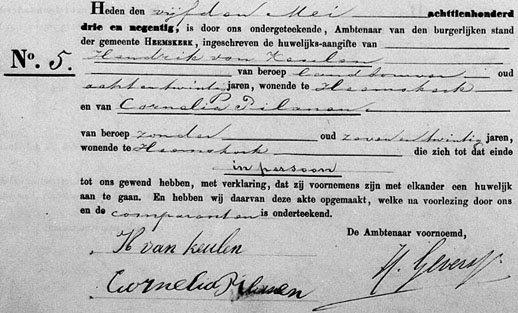 Heden den vijfden Mei achttienhonderd
drie en negentig, is door ons ondergeteekende, Ambtenaar van den burgerlijken stand
der gemeente Heemskerk, ingeschreven de huwelijks-aangifte van
No. 5.
Hendrik van Keulen
van beroep landbouwer oud
acht en twintig jaren, wonende te Heemskerk
en van Cornelia Pilanen
van beroep zonder oud zeven en twintig jaren,
wonende te Heemskerk die zich tot dat einde
in persoon
tot ons gewend hebben, met verklaring, dat zij voornemens zijn met elkander een huwelijk
aan te gaan. En hebben wij daarvan deze akte opgemaakt, welke na voorlezing door ons
en de comparanten is onderteekend.
De Ambtenaar voornoemd,
H van Keulen
H. Gevers
Cornelia Pilanen